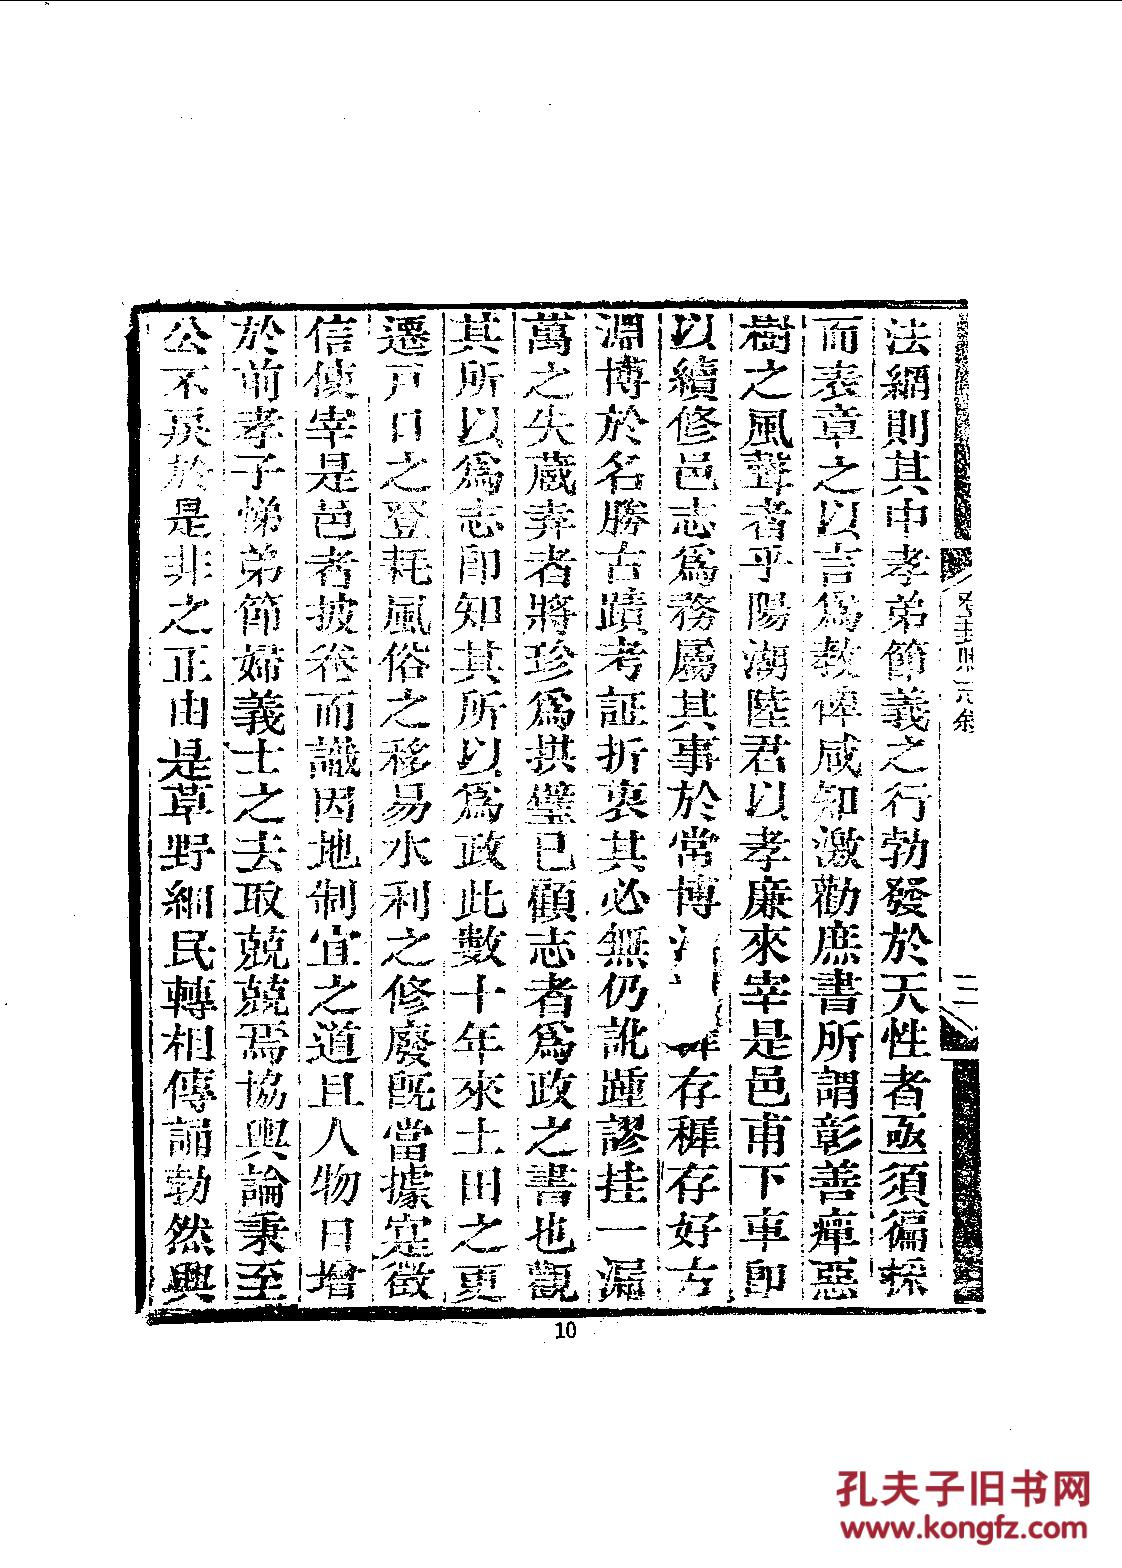 法網則其中孝弟節義之行勃發於天性者亟須徧採
而表章之以言爲教俾咸知激勸庶書所謂彰善癉惡
樹之風聲者乎陽湖陸君以孝廉來宰是邑甫下車即
以續修邑志爲務屬其事於常博存稺存好方
淵博於名勝古蹟考証折衷其必無仍訛踵謬挂一漏
萬之失蔵弆者將珍爲拱璧已顧志者爲政之書也觀
其所以爲志即知其所以爲政此數十年來土田之更
遷戸口之登耗風俗之移易水利之修廢既當據寔徵
信使宰是邑者披卷而識因地制宜之道且人物日增
於前孝子悌弟節婦義士之去取兢兢焉協輿論秉至
公不戾於是非之正由是草野細民轉相傳誦勃然興
二
10
孔夫子旧书网
www.kongfz.com